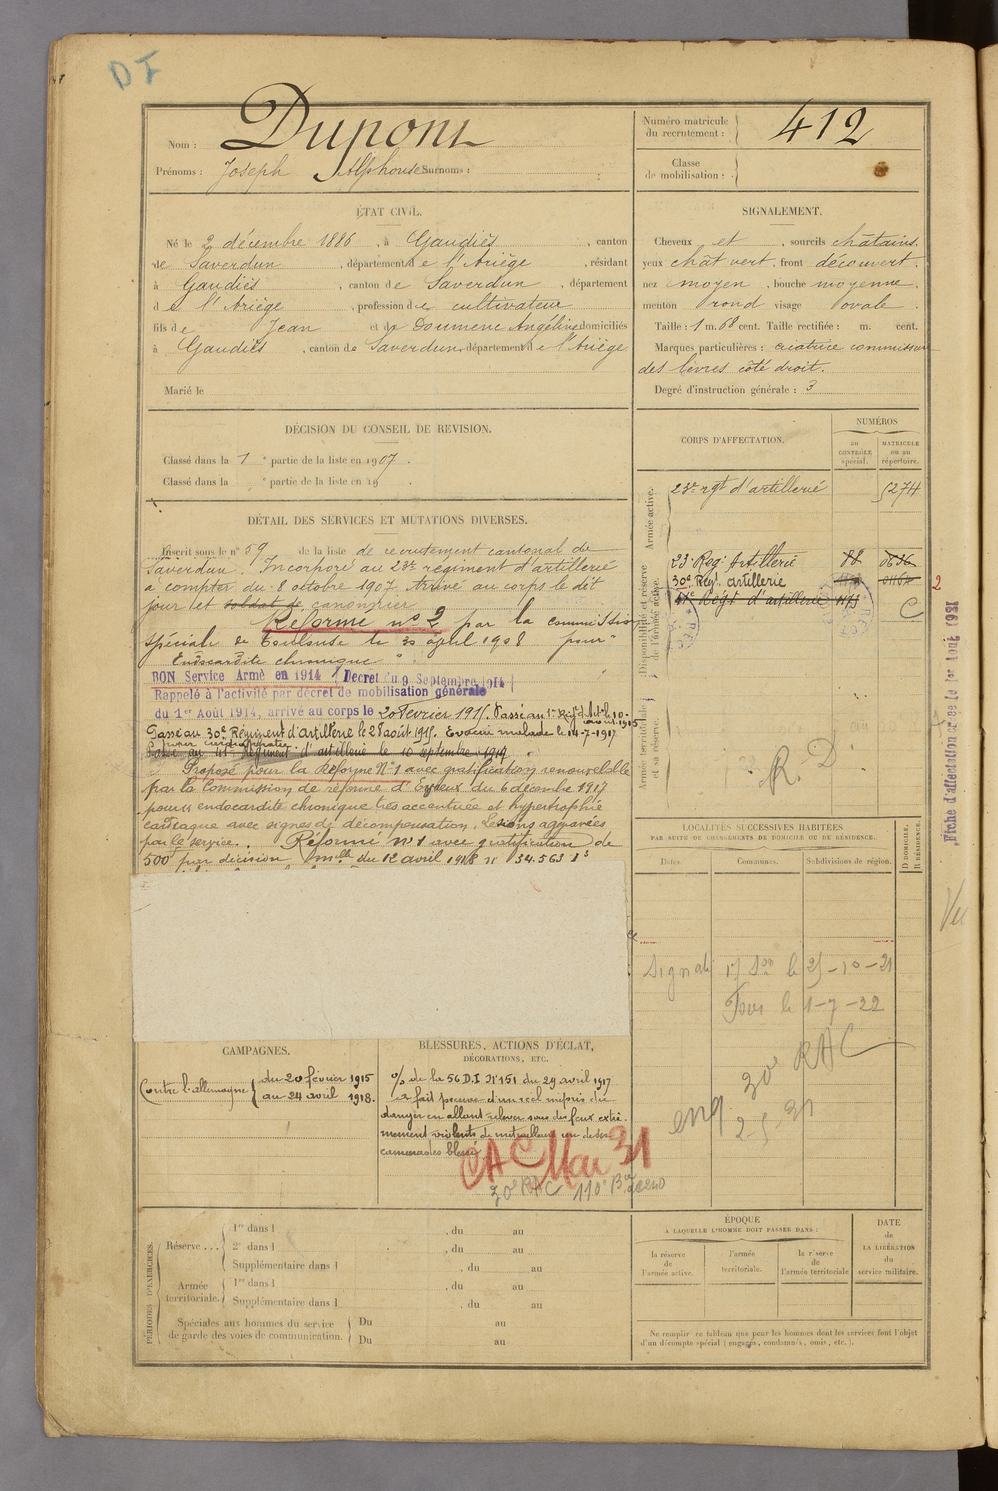 DI
Nom : Dupont
Prénoms : Joseph Alphonse Surnoms :
Numéro matricule
du recrutement : 412
Classe
de mobilisation :
ÉTAT CIVIL.
Né le 2 décembre 1886, à Gaudiès, canton
de Saverdun, département de l'Ariège, résidant
à Gaudiès, canton de Saverdun, département
de l'Ariège, profession de cultivateur
fils de Jean et de Doumenc Angéline domiciliés
à Gaudiès, canton de Saverdun, département de l'Ariège
Marié le
SIGNALEMENT.
Cheveux et , sourcils châtains.
yeux chât vert, front découvert.
nez moyen, bouche moyenne.
menton rond visage ovale.
Taille : 1 m. 68 cent. Taille rectifiée : m. cent.
Marques particulières : cicatrice commissure
des lèvres côté droit.
Degré d'instruction générale : 3
DÉCISION DU CONSEIL DE REVISION.
Classé dans la 1e partie de la liste en 1907.
Classé dans la e partie de la liste en 19 .
CORPS D'AFFECTATION.
NUMÉROS
au
CONTRÔLE
spécial.
MATRICULE
ou au
répertoire.
Armée active.
23e rgt d'artillerie 5274
Disponibilité et réserve
de l'armée active.
23 Reg. Artillerie 88
30e Régt. artillerie
Régt d'artillerie
2
C
Armée territoriale
et sa réserve.
R. D.
DÉTAIL DES SERVICES ET MUTATIONS DIVERSES.
Inscrit sous le n° 59 de la liste de recrutement cantonal de
Saverdun. Incorporé au 23e régiment d'artillerie
à compter du 8 octobre 1907. Arrivé au corps le dit
jour et soldat de canonnier
Réformé n° 2 par la commission
spéciale de Toulouse le 30 avril 1908 pour "
Endocardite chronique "
BON Service Armé en 1914 (Décret du 9 Septembre 1914)
Rappelé à l'activité par décret de mobilisation générale
du 1er Août 1914, arrivé au corps le 20 Février 1915. Passé au
Passé au 30e Régiment d'artillerie le 28 août 1915. Evacué malade le 14-7-1917
Passé au 41e Régiment d'artillerie le 10 septembre 1917
Proposé pour la Réforme N°1 avec gratification renouvelable
par la Commission de réforme d'Evreux du 6 décembre 1917
pour endocardite chronique très accentuée et hypertrophie
cardiaque avec signes de décompensation. Lésions aggravées
par le service. Réformé n°1 avec gratification de
500f par décision mlle du 12 avril 1918 n° 34.563
LOCALITÉS SUCCESSIVES HABITÉES
PAR SUITE DE CHANGEMENTS DE DOMICILE OU DE RÉSIDENCE.
Dates.
Communes.
Subdivisions de région.
D DOMICILE.
R RÉSIDENCE.
Signalé le 25-10-21
le 1-7-22
30e RAC
2-5-31
Fiche d'affectation créée le 1er Août 1931
Vu
CAMPAGNES.
Contre l'allemagne { du 20 février 1915
au 24 avril 1918.
BLESSURES, ACTIONS D'ÉCLAT,
DÉCORATIONS, ETC.
% de la 56 D.I N°151 du 29 avril 1917
a fait preuve d'un réel mépris du
danger en allant relever sous des feux extrê-
mement violents de mitrailleuses un de ses
camarades blessé
CAC Mai 31
30e RAC 110e
PÉRIODES D'EXERCICES.
Réserve . . . { 1re dans l , du au
2e dans l , du au
Supplémentaire dans l , du au
Armée
territoriale. { 1re dans l , du au
Supplémentaire dans l , du au
Spéciales aux hommes du service
de garde des voies de communication. { Du au
Du au
ÉPOQUE
À LAQUELLE L'HOMME DOIT PASSER DANS :
la réserve
de
l'armée active.
l'armée
territoriale.
la réserve
de
l'armée territoriale
DATE
de
LA LIBÉRATION
du
service militaire.
Ne remplir ce tableau que pour les hommes dont les services font l'objet
d'un décompte spécial (engagés, condamnés, omis, etc.).